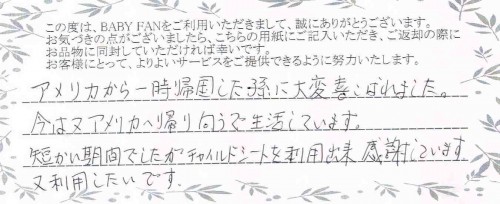 この度は、BABY FANをご利用いただきまして、誠にありがとうございます。
お気づきの点がございましたら、こちらの用紙にご記入いただき、ご返却の際に
お品物に同封していただければ幸いです。
お客様にとって、よりよいサービスをご提供できるように努力いたします。
アメリカから一時帰国した孫に大変喜こばれました。
今は又アメリカへ帰り向うで生活しています。
短かい期間でしたがチャイルドシートを利用出来感謝しています
又利用したいです.